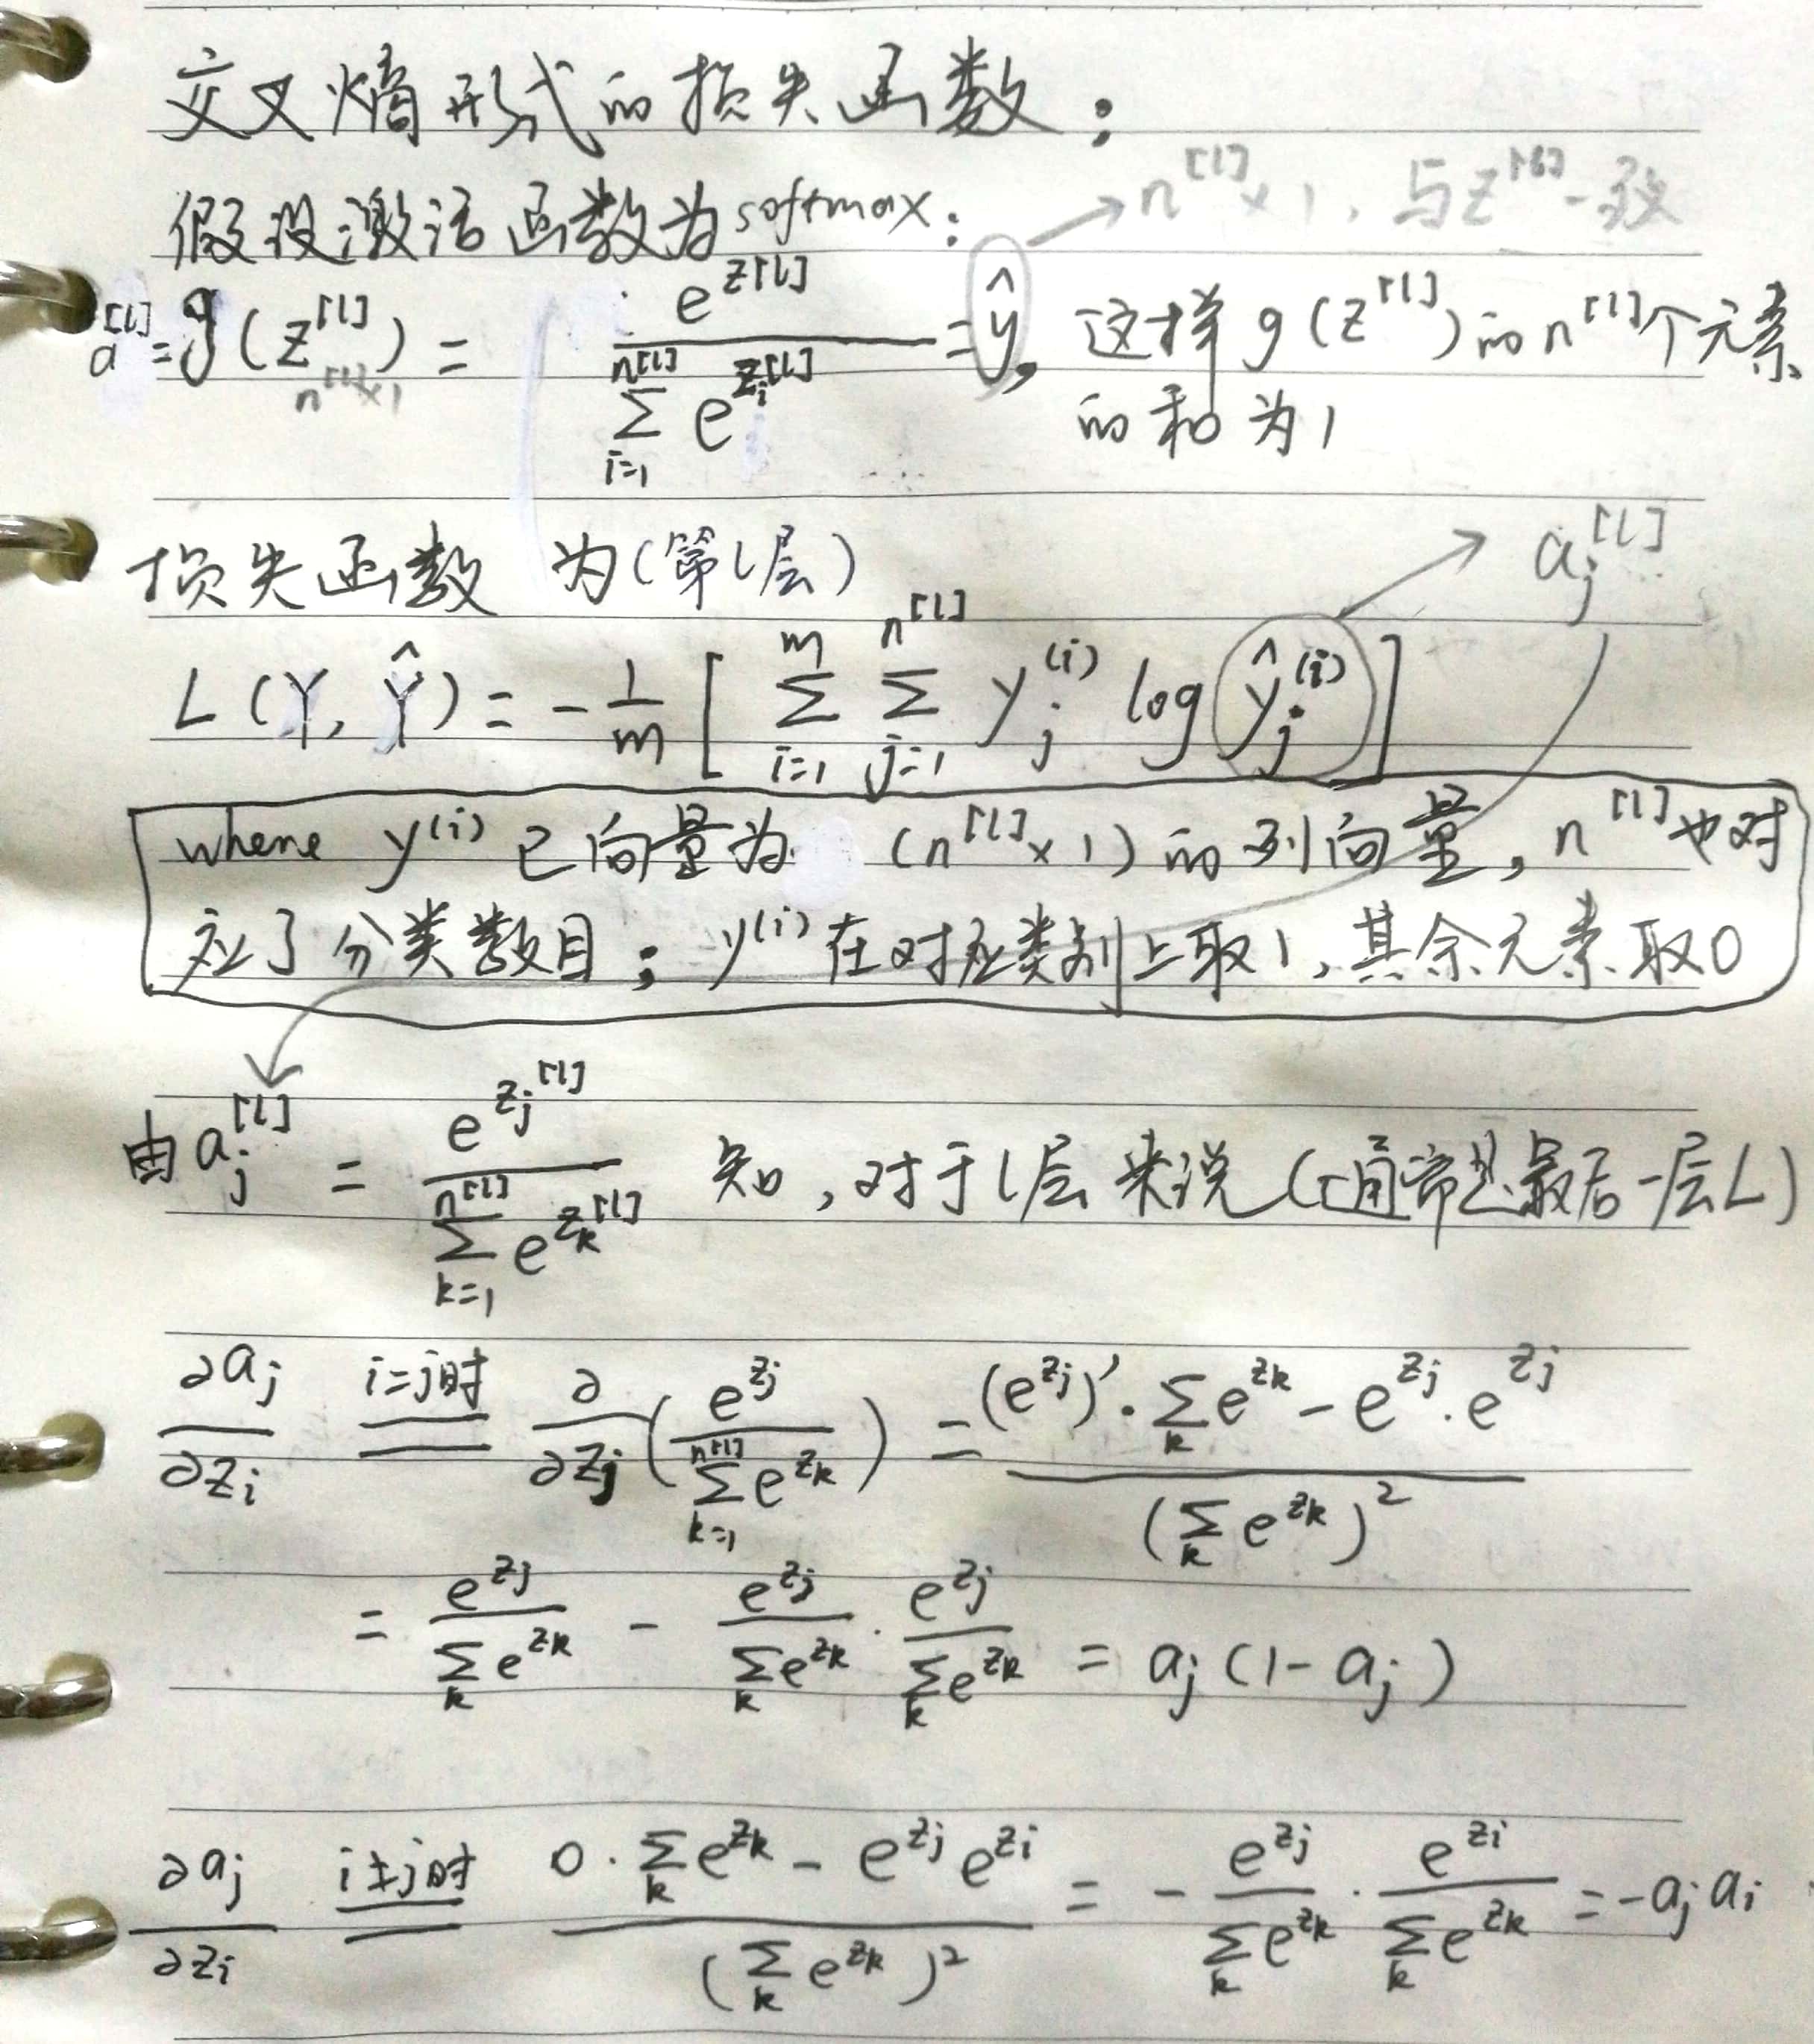 交叉熵形式的损失函数：
假设激活函数为softmax：
→ n^{[l]}×1, 与z^{[l]}一致
a^{[l]} = g(z^{[l]}_{n^{[l]}×1}) = \frac{e^{z^{[l]}}}{\sum_{i=1}^{n^{[l]}} e^{z_i^{[l]}}} = ŷ, 这样g(z^{[l]})的n^{[l]}个元素
的和为1
损失函数 为(第l层)
→ a_j^{[l]}
L(Y, Ŷ) = -\frac{1}{m} [ \sum_{i=1}^{m} \sum_{j=1}^{n^{[l]}} y_j^{(i)} log ŷ_j^{(i)} ]
where y^{(i)} 已向量为 (n^{[l]}×1)的列向量, n^{[l]}也对
应了分类数目; y^{(i)}在对应类别上取1, 其余元素取0
由 a_j^{[l]} = \frac{e^{z_j^{[l]}}}{\sum_{k=1}^{n^{[l]}} e^{z_k^{[l]}}} 知, 对于l层来说(通常是最后一层L)
\frac{∂a_j}{∂z_i} \xlongequal{i=j时} \frac{∂}{∂z_j} (\frac{e^{z_j}}{\sum_{k=1}^{n^{[l]}} e^{z_k}}) = \frac{(e^{z_j})' · \sum_k e^{z_k} - e^{z_j} · e^{z_j}}{(\sum_k e^{z_k})^2}
= \frac{e^{z_j}}{\sum_k e^{z_k}} - \frac{e^{z_j}}{\sum_k e^{z_k}} · \frac{e^{z_j}}{\sum_k e^{z_k}} = a_j(1-a_j)
\frac{∂a_j}{∂z_i} \xlongequal{i≠j时} \frac{0 · \sum_k e^{z_k} - e^{z_j} e^{z_i}}{(\sum_k e^{z_k})^2} = -\frac{e^{z_j}}{\sum_k e^{z_k}} · \frac{e^{z_i}}{\sum_k e^{z_k}} = -a_j a_i